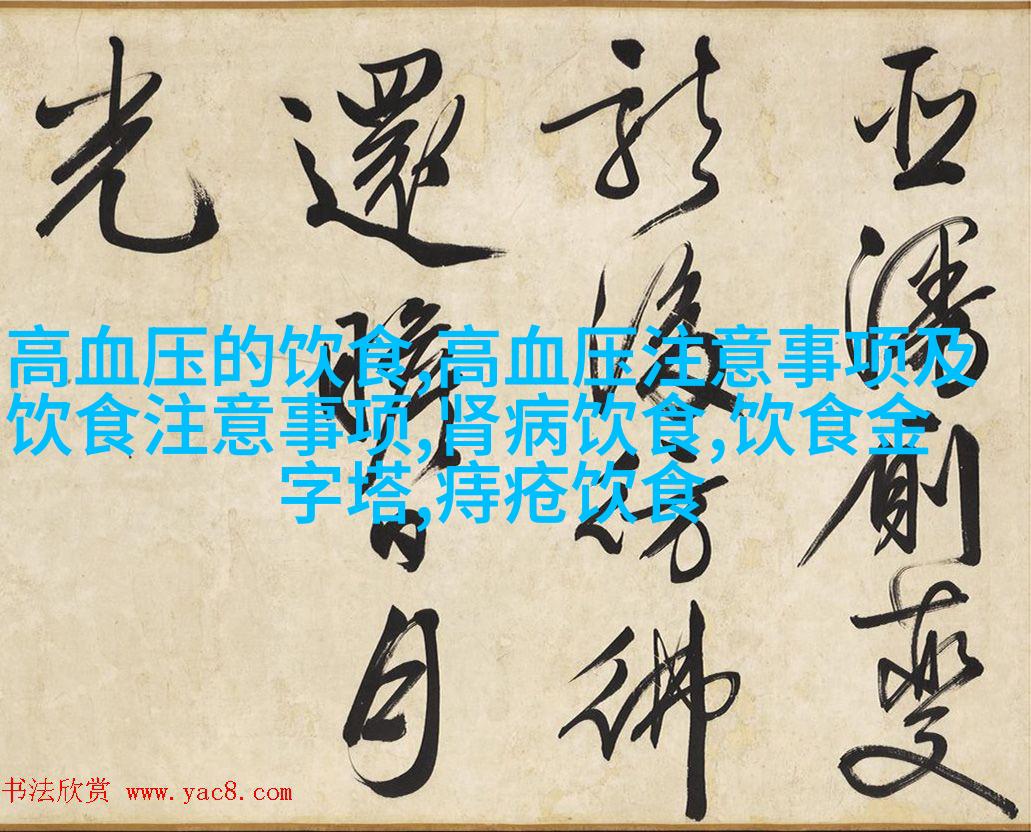 高血压的饮食,高血压注意事项及
饮食注意事项,肾病饮食,饮食金
字塔,痔疮饮食
潘變
彷彿
還日月
光
书法欣赏 www.yac8.com